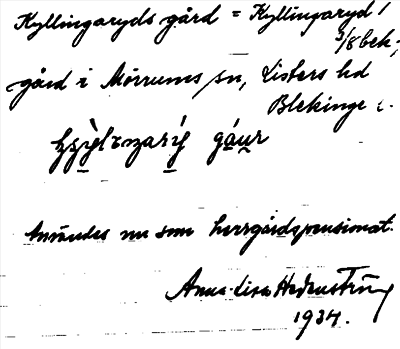 Kyllingaryds gård = Kyllingaryd 1
3/8 bek.;
gård i Mörrums sn, Listers hd
Blekinge l.
gáu̱r
Användes nu som herrgårdspensionat.
Anna-Lisa Hedenström
1934.